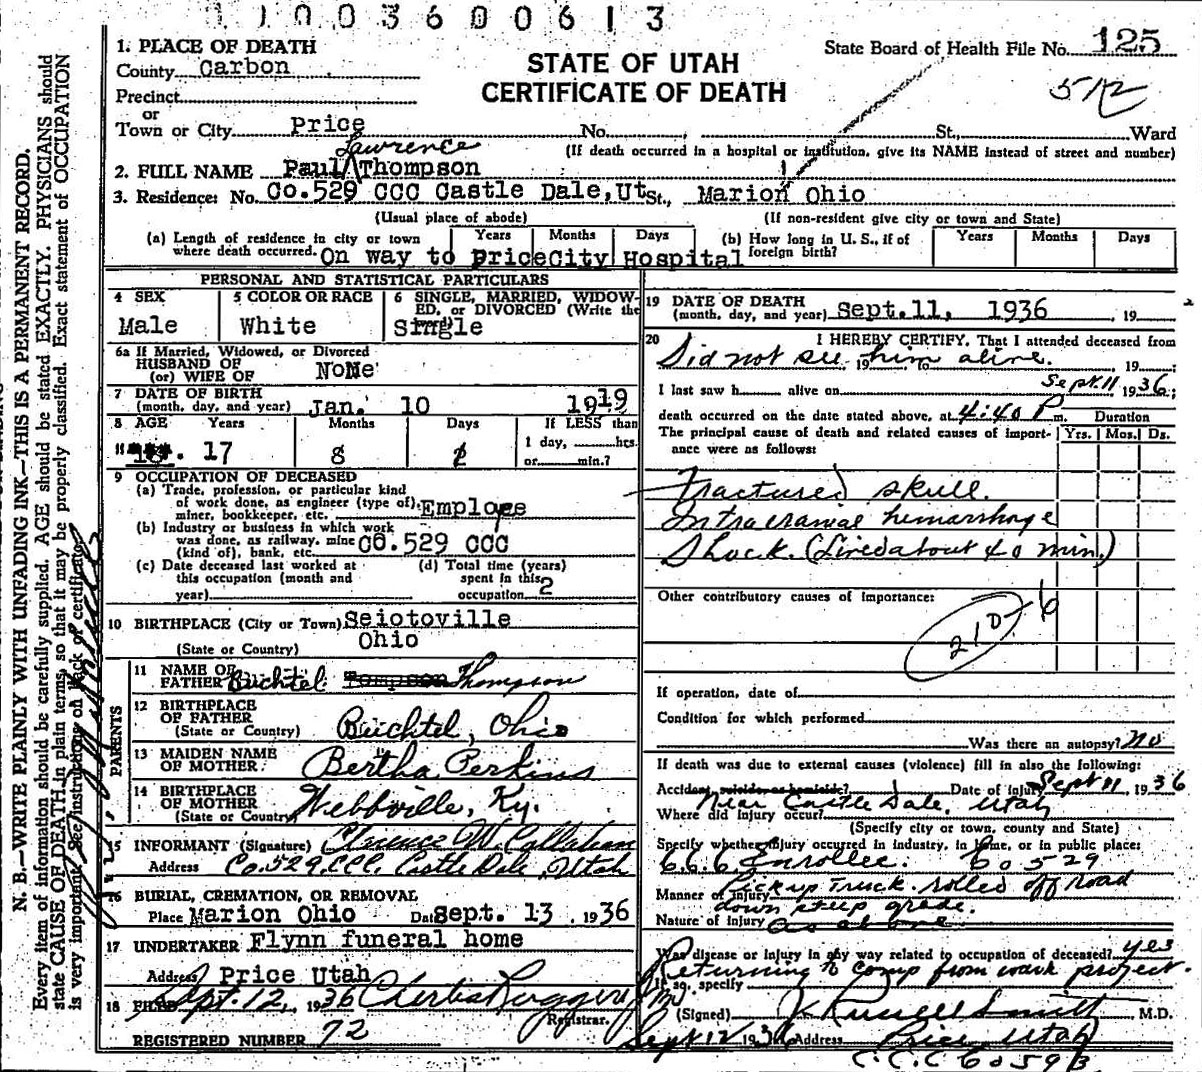 1 1 0 0 3 6 0 0 6 1 3
1. PLACE OF DEATH
County Carbon
Precinct
or
Town or City Price No. St., Ward
STATE OF UTAH
CERTIFICATE OF DEATH
State Board of Health File No. 125
512
(If death occurred in a hospital or institution, give its NAME instead of street and number)
Lawrence
2. FULL NAME Paul Thompson
3. Residence: No. Co.529 CCC Castle Dale,Ut St., Marion Ohio
(Usual place of abode) (If non-resident give city or town and State)
(a) Length of residence in city or town where death occurred. Years Months Days
On way to priceCity Hospital
(b) How long in U. S., if of foreign birth? Years Months Days
PERSONAL AND STATISTICAL PARTICULARS
4 SEX
Male
5 COLOR OR RACE
White
6 SINGLE, MARRIED, WIDOW-
ED, or DIVORCED (Write the
Single
6a If Married, Widowed, or Divorced
HUSBAND OF
(or) WIFE OF NoNe
7 DATE OF BIRTH
(month, day, and year) Jan. 10 1919
8 AGE Years Months Days If LESS than
17 8 1 day, hrs.
or min.?
9 OCCUPATION OF DECEASED
(a) Trade, profession, or particular kind
of work done, as engineer (type of),
miner, bookkeeper, etc. Employe
(b) Industry or business in which work
was done, as railway, mine
(kind of), bank, etc. CO.529 CCC
(c) Date deceased last worked at
this occupation (month and
year)
(d) Total time (years)
spent in this
occupation 2
10 BIRTHPLACE (City or Town) Seiotoville
(State or Country) Ohio
PARENTS
11 NAME OF
FATHER Buchtel Tompson Thompson
12 BIRTHPLACE
OF FATHER
(State or Country) Buchtel, Ohio
13 MAIDEN NAME
OF MOTHER Bertha Perkins
14 BIRTHPLACE
OF MOTHER
(State or Country) Webbville, Ky.
15 INFORMANT (Signature) Clarence W. Callahan
Address Co.529.CCC. Castle Dale, Utah
16 BURIAL, CREMATION, OR REMOVAL
Place Marion Ohio Date Sept. 13 1936
17 UNDERTAKER Flynn funeral home
Address Price Utah
18 FILED Sept. 12, 1936
Registrar.
REGISTERED NUMBER 72
19 DATE OF DEATH
(month, day, and year) Sept.11, 1936 , 19
20 I HEREBY CERTIFY, That I attended deceased from
Did not see him alive. 19 to 19
I last saw h alive on Sept 11 1936;
death occurred on the date stated above, at 4:40 P m. Duration
The principal cause of death and related causes of import-
ance were as follows: Yrs. Mos. Ds.
Fractured skull.
Intracranial hemorrhage
Shock. (Lived about 40 min.)
Other contributory causes of importance:
210-b
If operation, date of
Condition for which performed
Was there an autopsy? No
If death was due to external causes (violence) fill in also the following:
Accident, suicide or homicide? Date of injury Sept 11 1936
Where did injury occur? Near Castle Dale, Utah
(Specify city or town, county and State)
Specify whether injury occurred in industry, in home, or in public place:
C.C.C. Enrollee. Co 529
Manner of injury Pickup Truck rolled off road
down steep grade.
Nature of injury as above
Was disease or injury in any way related to occupation of deceased? yes
If so, specify Returning to camp from work project.
(Signed) J. Russell Smith M.D.
Sept 12 1936 Address Price, Utah
N. B.—WRITE PLAINLY WITH UNFADING INK—THIS IS A PERMANENT RECORD.
Every item of information should be carefully supplied. AGE should be stated EXACTLY. PHYSICIANS should
state CAUSE OF DEATH in plain terms, so that it may be properly classified. Exact statement of OCCUPATION
is very important. See instructions on back of certificate.